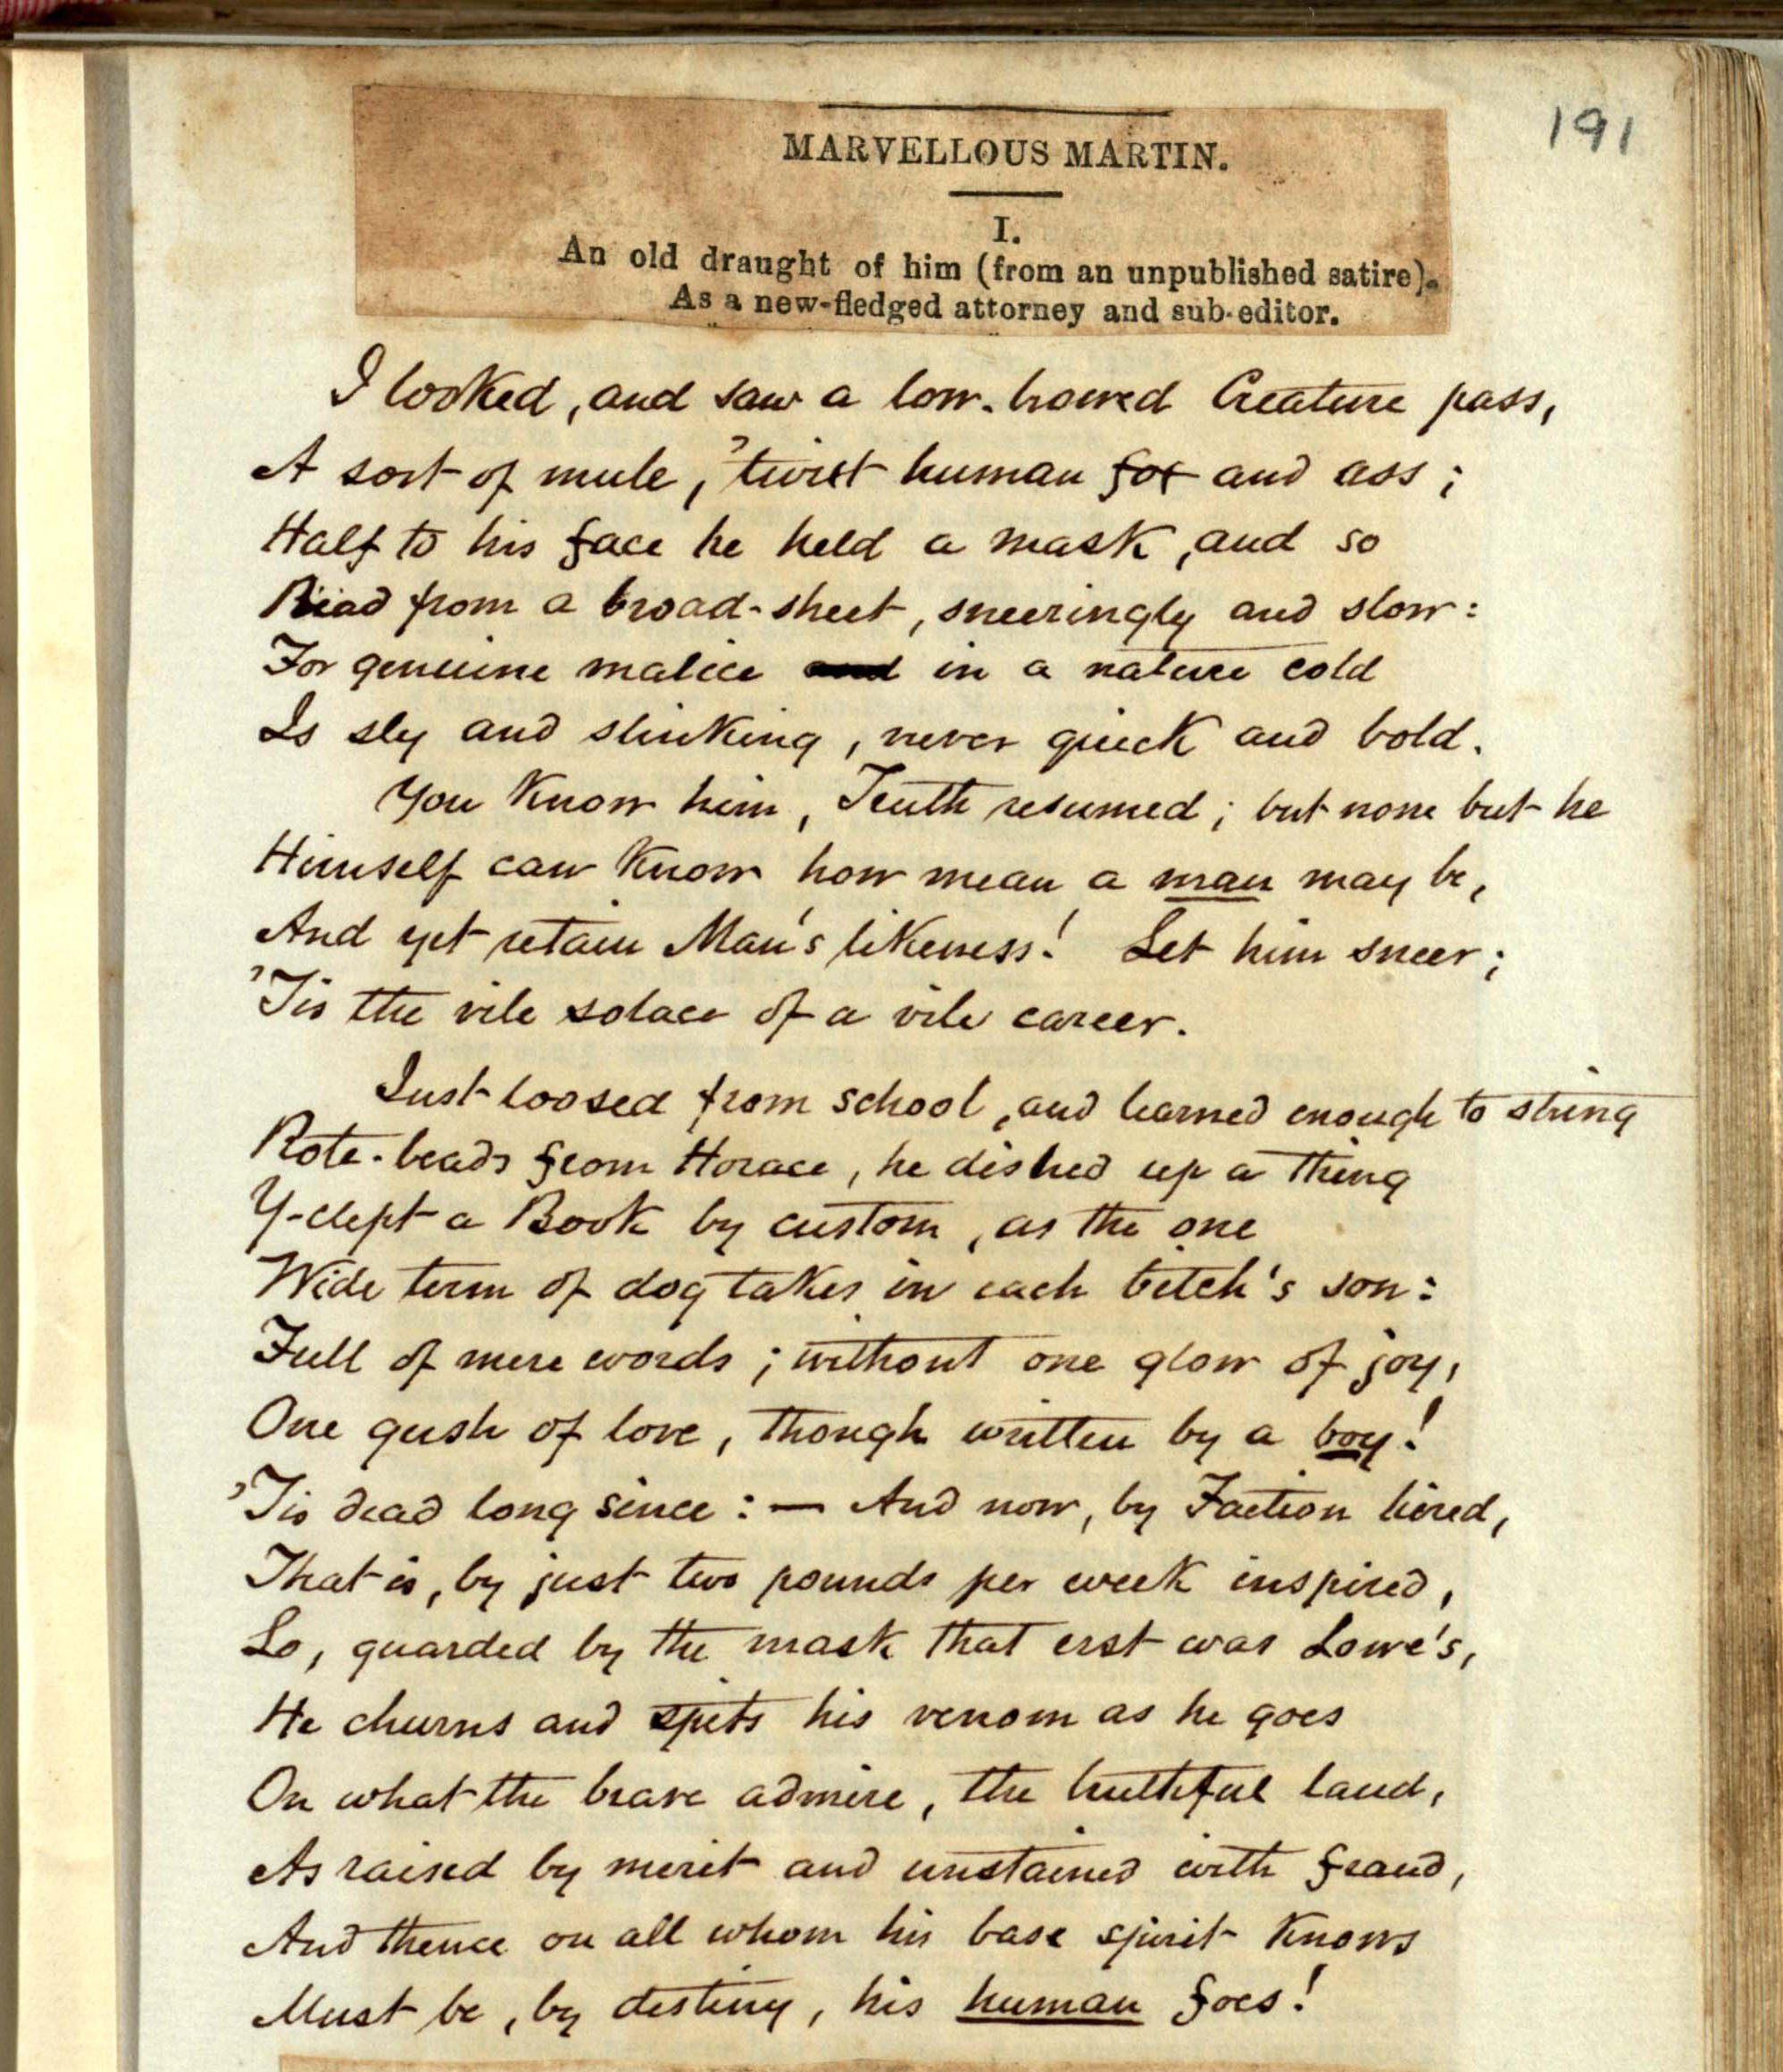 191
MARVELLOUS MARTIN.
I.
An old draught of him (from an unpublished satire).
As a new-fledged attorney and sub-editor.
I looked, and saw a low-browed Creature pass,
A sort of mule, 'twixt human fox and ass;
Half to his face he held a mask, and so
Read from a broad-sheet, sneeringly and slow:
For genuine malice in a nature cold
Is sly and slinking, never quick and bold.
You know him, Truth resumed; but none but he
Himself can know how mean a man may be,
And yet retain Man's likeness! Let him sneer;
'Tis the vile solace of a vile career.
Just loosed from school, and learned enough to string
Rote-beads from Horace, he dished up a thing
Y-clept a Book by custom, as the one
Wide term of dog takes in each bitch's son:
Full of mere words; without one glow of joy,
One gush of love, though written by a boy!
'Tis dead long since: — And now, by Faction hired,
That is, by just two pounds per week inspired,
Lo, guarded by the mask that erst was Lowe's,
He churns and spits his venom as he goes
On what the brave admire, the truthful laud,
As raised by merit and unstained with fraud,
And thence on all whom his base spirit knows
Must be, by destiny, his human foes!